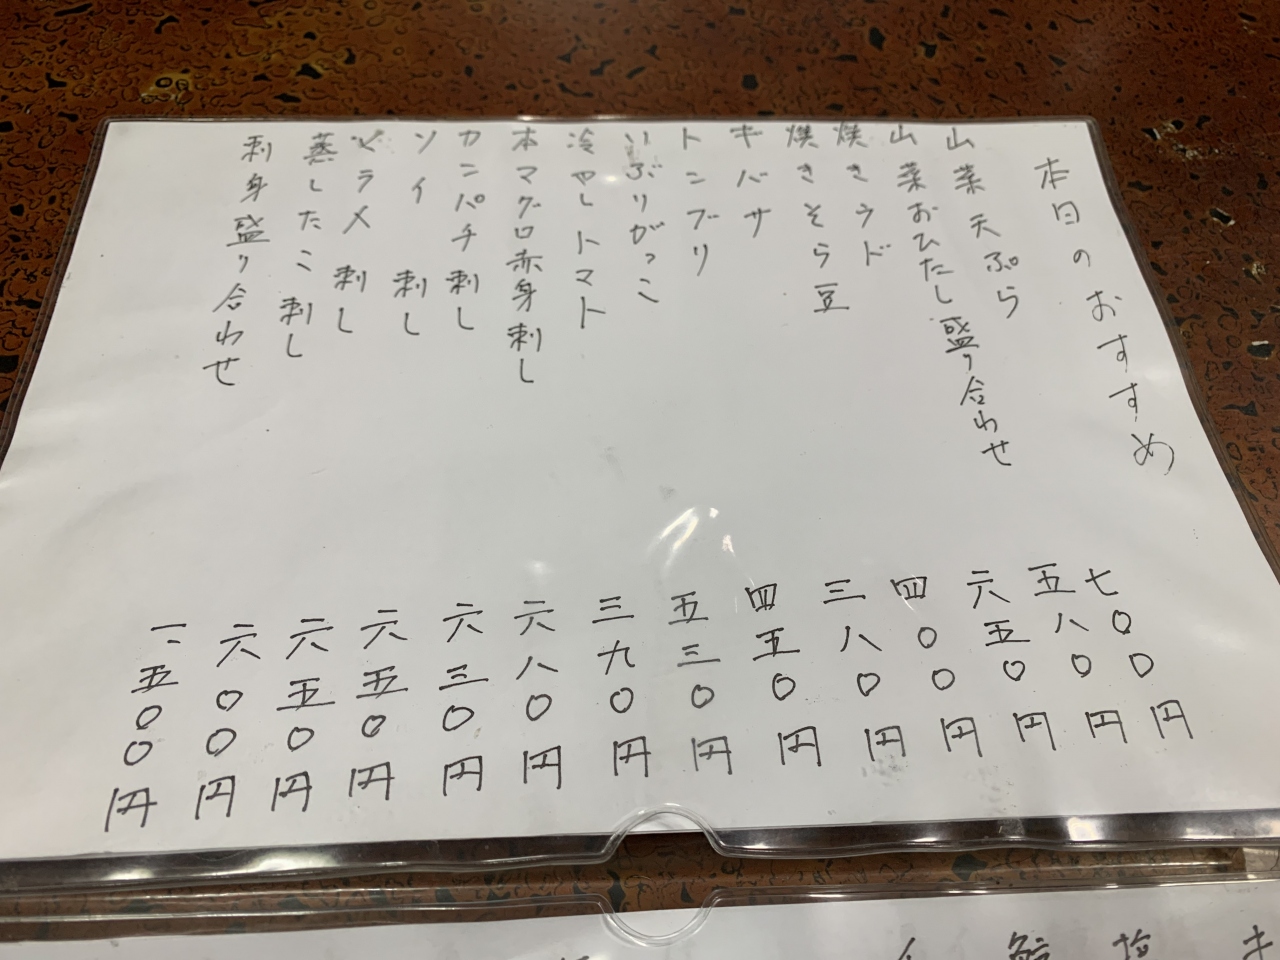 本日のおすすめ
山菜天ぷら 七〇〇円
山菜おひたし盛り合わせ 五八〇円
焼きウド 六五〇円
焼きそら豆 四〇〇円
キバサ 三八〇円
トンブリ 四五〇円
いぶりがっこ 五三〇円
冷やしトマト 三九〇円
本マグロ赤身刺し 六八〇円
カンパチ刺し 六三〇円
ソイ 刺し 六五〇円
ヒラメ 刺し 六五〇円
蒸したこ 刺し 六〇〇円
刺身盛り合わせ 一、五〇〇円